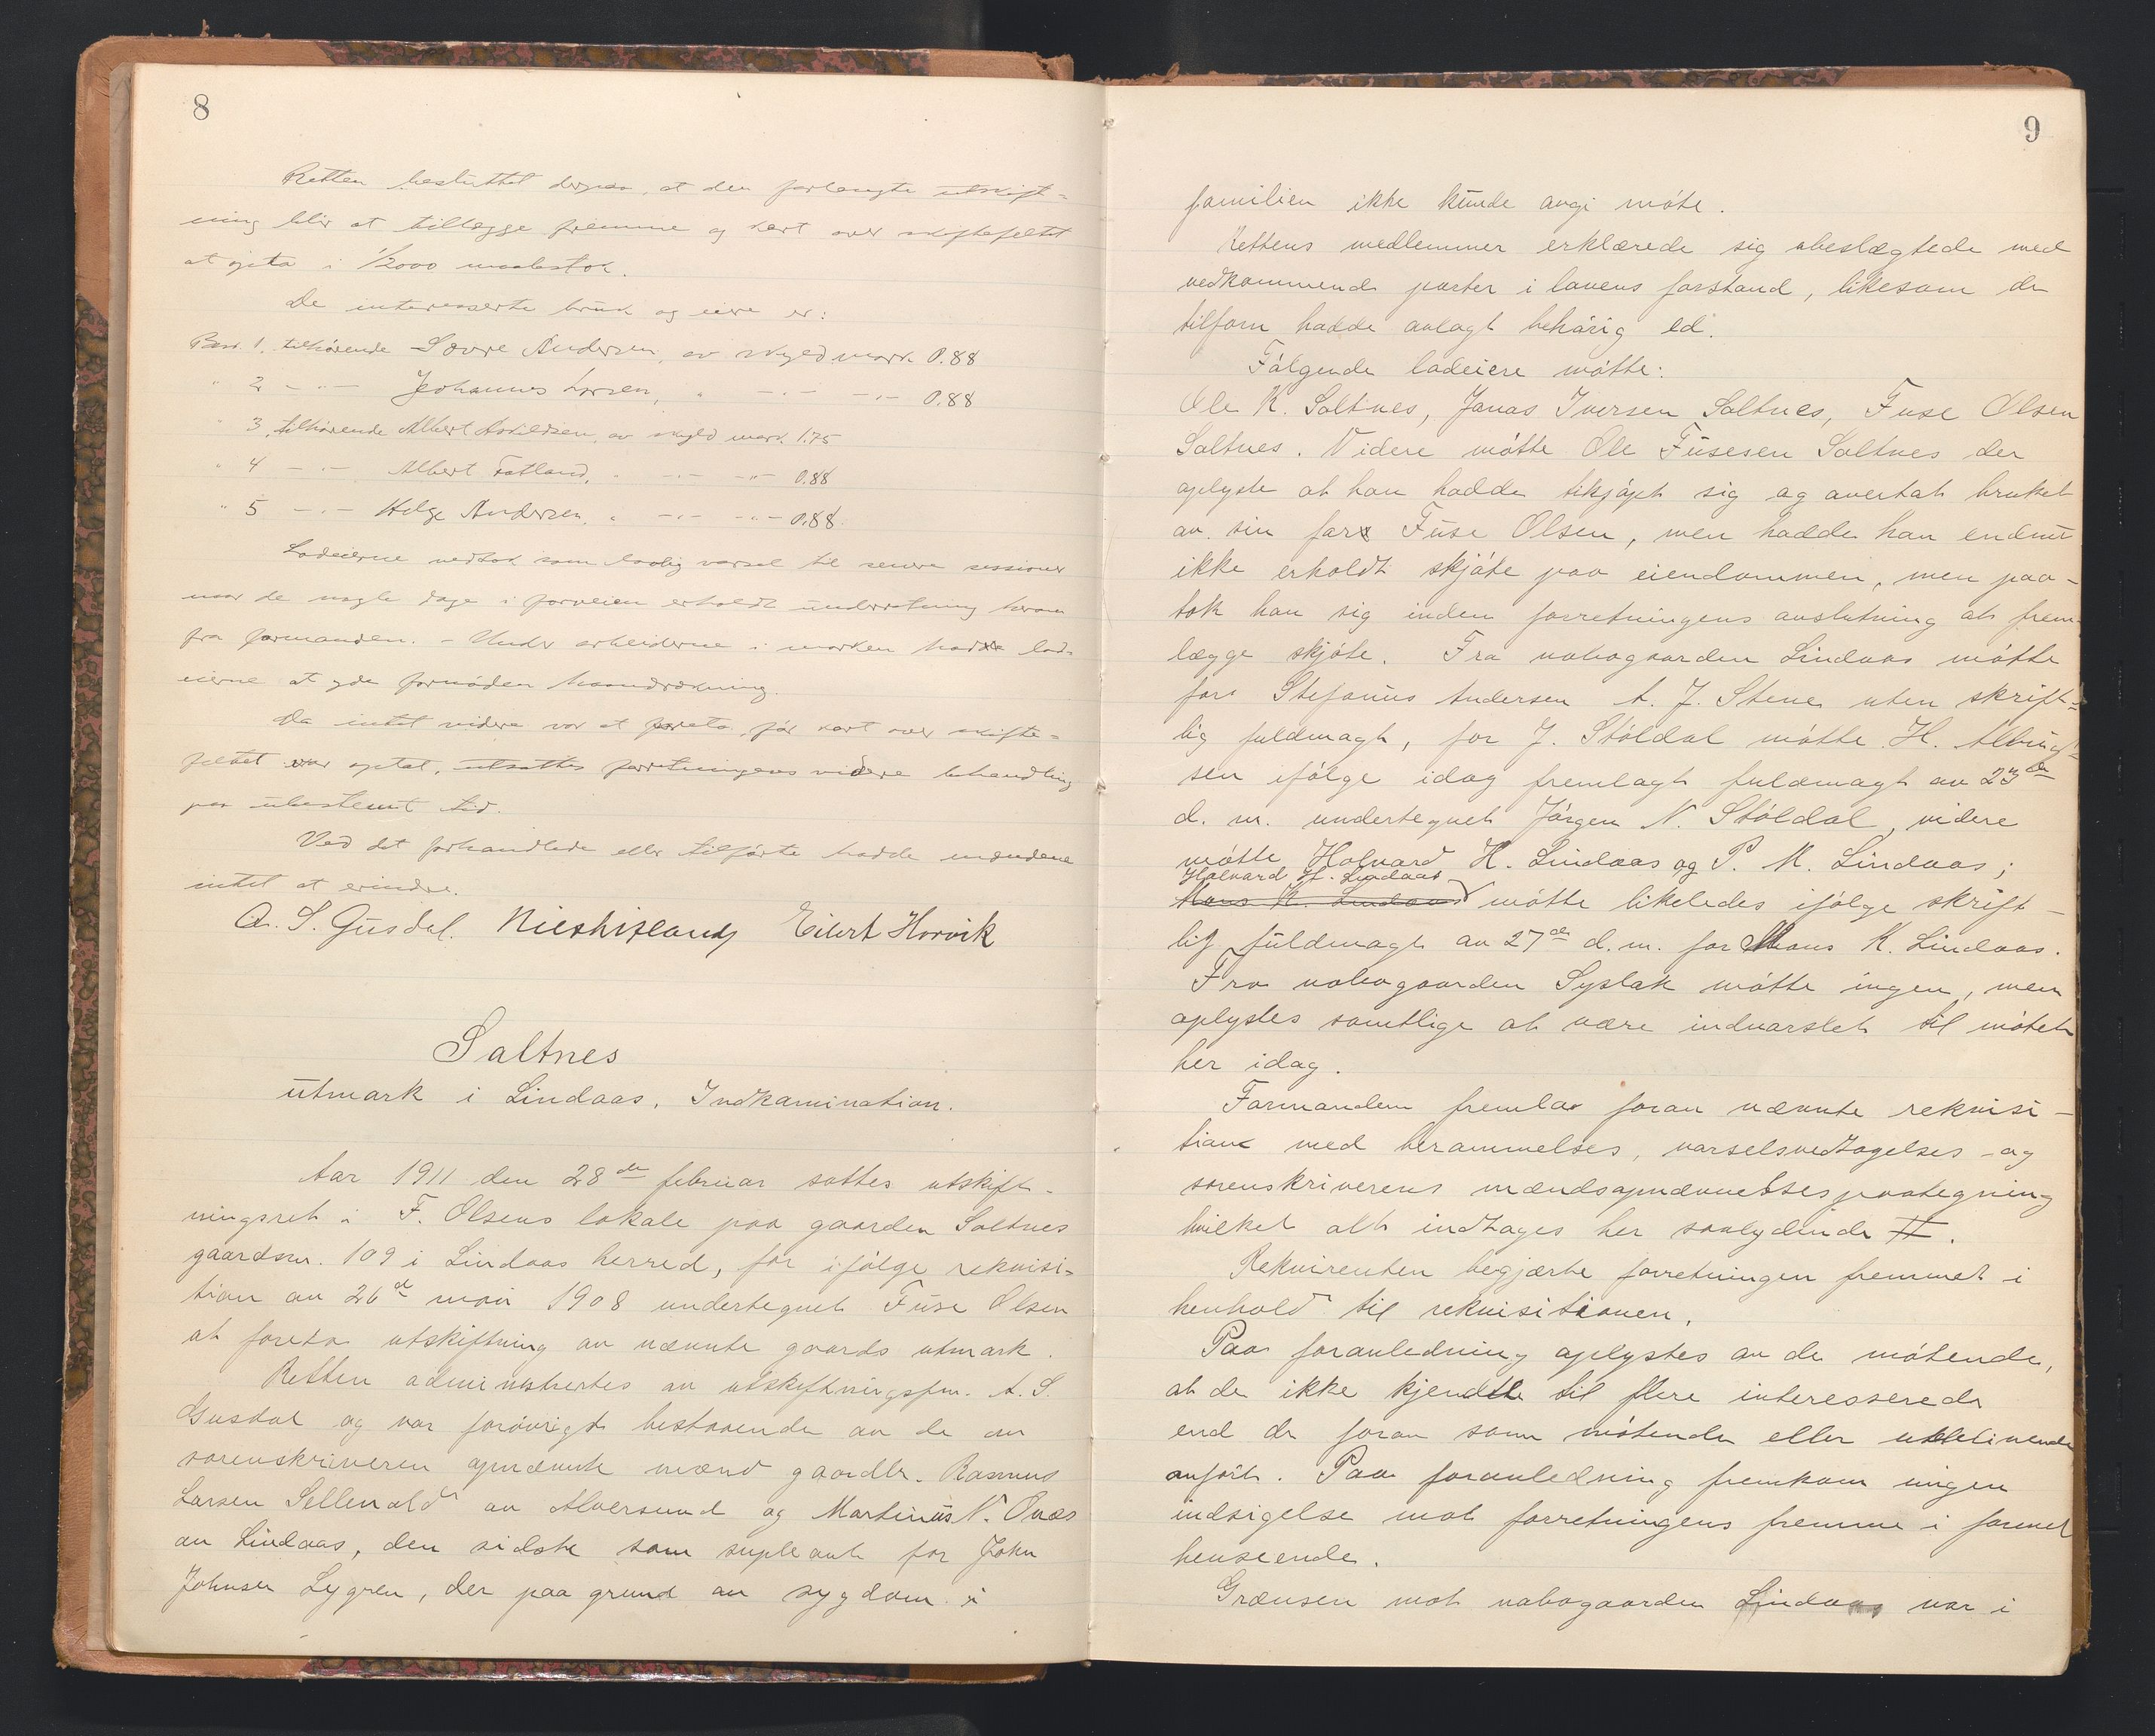 8
Retten besluttet derpaa, at den forlangte utskift-
ning blir at tillægge fremme og kart over skiftefeltet
at opta i 1/2000 maalestok.
De interesserte bruk og eiere er:
Bn. 1, tilhørende Sjovre Andersen, av skyldmark 0.88
" 2 - " - Johannes Larsen, " - " - - " - 0.88
" 3, tilhørende Albert Askildsen, av skyld mark 1.75
" 4 - " - Albert Fatland, " - " - - " - 0.88
" 5 - " - Helge Andersen, " - " - - " - 0.88.
Lodeierne vedtok som lovlig varsel til senere sessioner
naar de nogle dage i forveien erholdt underretning herom
fra formanden. - Under arbeiderne i marken hadde lod-
eierne at yde fornøden haandrækning.
Da intet videre var at foreta før kart over skifte-
feltet var optat, utsattes forretningens videre behandling
paa ubestemt tid.
Ved det forhandlede eller tilførte hadde mændene
intet at erindre.
A. S. Gusdal. Eilert Horvik
Saltnes
utmark i Lindaas. Indkamination.
Aar 1911 den 28de februar sattes utskift-
ningsret i F. Olsens lokale paa gaarden Saltnes
gaardsnr. 109 i Lindaas herred, for ifølge rekvisi-
tion av 26de mai 1908 undertegnet Fuse Olsen
at foreta utskiftning av nævnte gaards utmark.
Retten administrertes av utskiftningsfm. A. S.
Gusdal og var forøvrigt bestaaende av de av
sorenskriveren opnævnte mænd gaardbr. Rasmus
Larsen Sellevold av Alversund og Martinus N. Onæs
av Lindaas, den sidste som supleant for John
Johnsen Lygren, der paa grund av sygdom i
9
familien ikke kunde avgi møte.
Rettens medlemmer erklærede sig ubeslægtede med
vedkommende parter i lovens forstand, likesom de
tilforn hadde avlagt behørig ed.
Følgende lodeiere møtte:
Ole K. Saltnes, Jonas Iversen Saltnes, Fuse Olsen
Saltnes. Videre møtte Ole Fusesen Saltnes der
oplyste at han hadde tilkjøpt sig og overtat bruket
av sin far Fuse Olsen, men hadde han endnu
ikke erholdt skjøte paa eiendommen, men paa-
tok han sig inden forretningens avslutning at frem-
lægge skjøte. Fra nabogaarden Lindaas møtte
for Stefanus Andersen A. J. Stene uten skrift-
lig fuldmagt, for J. Støldal møtte H. Albrigt-
sen ifølge idag fremlagt fuldmagt av 23de
d. m. undertegnet Jørgen N. Støldal, videre
møtte Halvard H. Lindaas og P. M. Lindaas;
Halvard H. Lindaas
Mons K. Lindaas møtte likeledes ifølge skrift-
lig fuldmagt av 27de d. m. for Mons K. Lindaas.
Fra nabogaarden Syslak møtte ingen, men
oplystes samtlige at være indvarslet til møtet
her idag.
Formanden fremla foran nævnte rekvisi-
tion med berammelses, varselsvedtagelses - og
sorenskriverens mændsopnævnelsespaategning
hvilket alt indtages her saalydende #.
Rekvirenten begjærte forretningen fremmet i
henhold til rekvisitionen.
Paa foranledning oplystes av de møtende,
at de ikke kjendte til flere interesserede
end de foran som møtende eller uteblivende
anført. Paa foranledning fremkom ingen
indsigelse mot forretningens fremme i formel
henseende.
Grænsen mot nabogaarden Lindaas var i